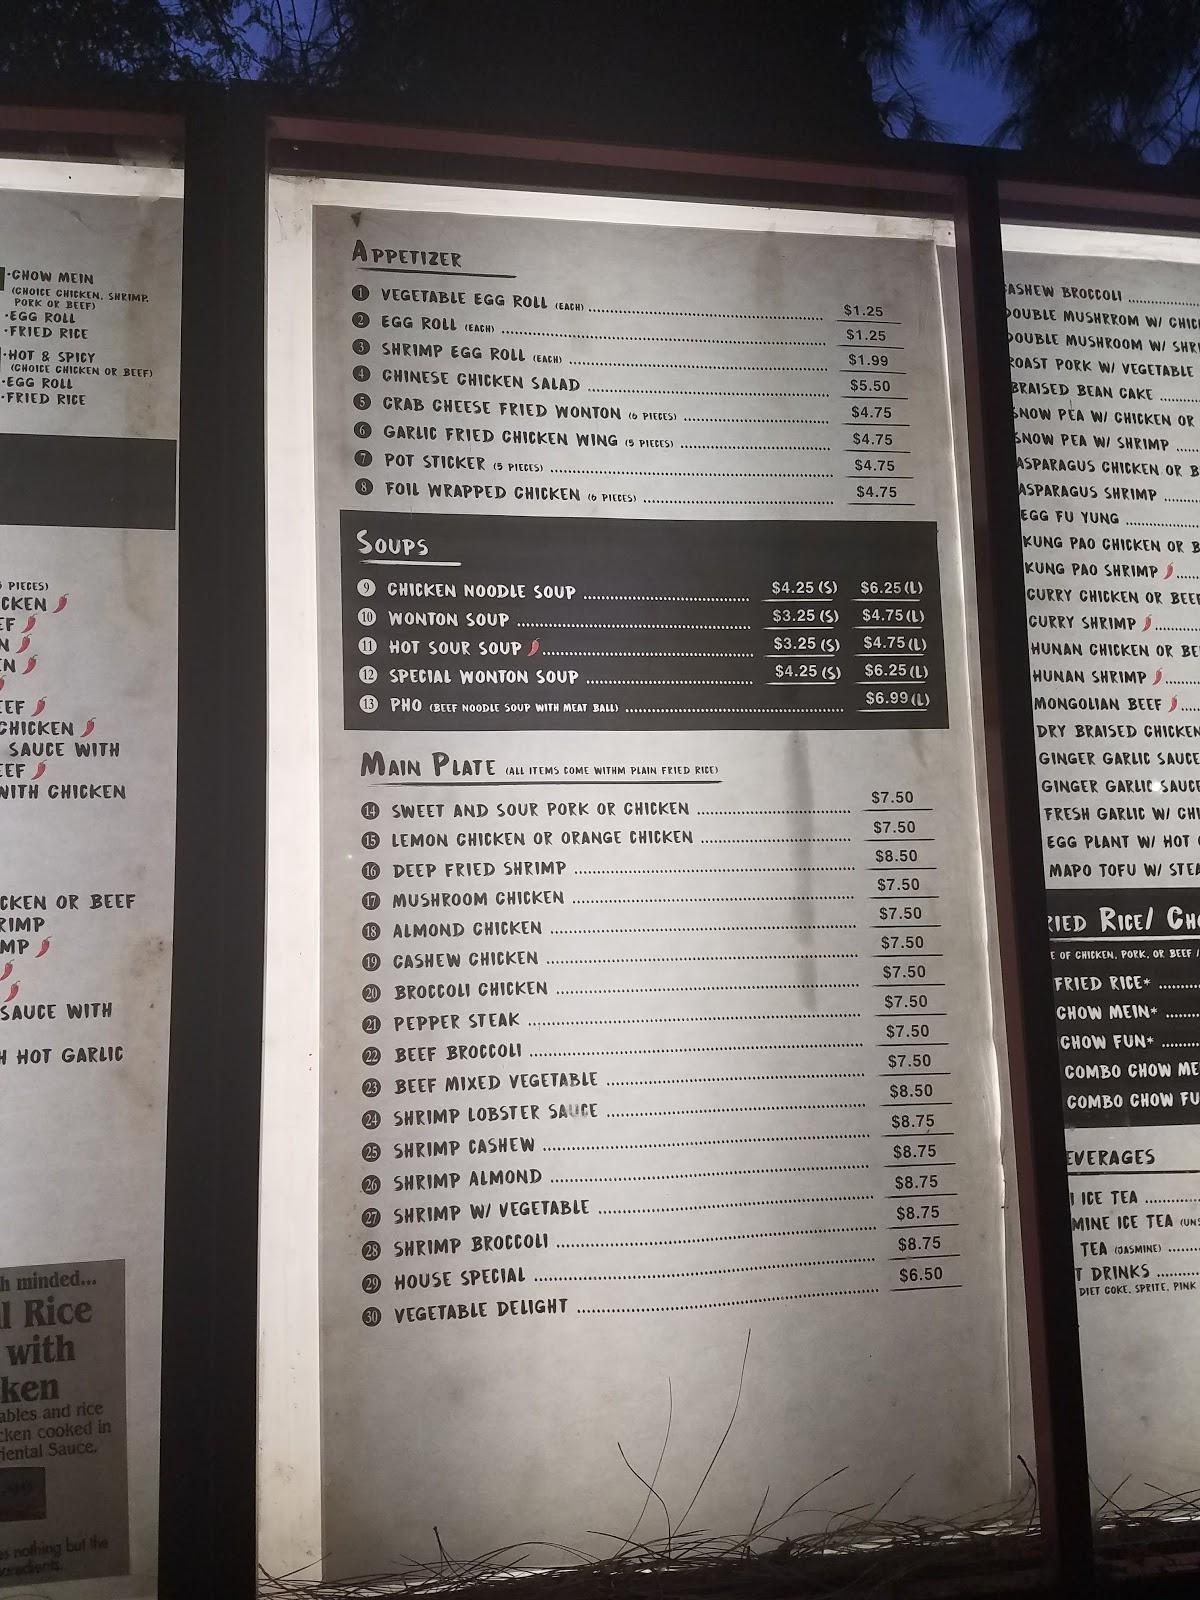 ·CHOW MEIN
(CHOICE CHICKEN, SHRIMP,
PORK OR BEEF)
·EGG ROLL
·FRIED RICE
·HOT & SPICY
(CHOICE CHICKEN OR BEEF)
·EGG ROLL
·FRIED RICE
PIECES)
CKEN
EF
N
EN
EEF
CHICKEN
SAUCE WITH
EEF
WITH CHICKEN
CKEN OR BEEF
RIMP
MP
SAUCE WITH
H HOT GARLIC
h minded...
l Rice
with
ken
ables and rice
cken cooked in
iental Sauce.
es nothing but the
gredients.
APPETIZER
1 VEGETABLE EGG ROLL (EACH) $1.25
2 EGG ROLL (EACH) $1.25
3 SHRIMP EGG ROLL (EACH) $1.99
4 CHINESE CHICKEN SALAD $5.50
5 CRAB CHEESE FRIED WONTON (6 PIECES) $4.75
6 GARLIC FRIED CHICKEN WING (5 PIECES) $4.75
7 POT STICKER (5 PIECES) $4.75
8 FOIL WRAPPED CHICKEN (6 PIECES) $4.75
SOUPS
9 CHICKEN NOODLE SOUP $4.25 (S) $6.25 (L)
10 WONTON SOUP $3.25 (S) $4.75 (L)
11 HOT SOUR SOUP $3.25 (S) $4.75 (L)
12 SPECIAL WONTON SOUP $4.25 (S) $6.25 (L)
13 PHO (BEEF NOODLE SOUP WITH MEAT BALL) $6.99 (L)
MAIN PLATE (ALL ITEMS COME WITHM PLAIN FRIED RICE)
14 SWEET AND SOUR PORK OR CHICKEN $7.50
15 LEMON CHICKEN OR ORANGE CHICKEN $7.50
16 DEEP FRIED SHRIMP $8.50
17 MUSHROOM CHICKEN $7.50
18 ALMOND CHICKEN $7.50
19 CASHEW CHICKEN $7.50
20 BROCCOLI CHICKEN $7.50
21 PEPPER STEAK $7.50
22 BEEF BROCCOLI $7.50
23 BEEF MIXED VEGETABLE $7.50
24 SHRIMP LOBSTER SAUCE $8.50
25 SHRIMP CASHEW $8.75
26 SHRIMP ALMOND $8.75
27 SHRIMP W/ VEGETABLE $8.75
28 SHRIMP BROCCOLI $8.75
29 HOUSE SPECIAL $8.75
30 VEGETABLE DELIGHT $6.50
CASHEW BROCCOLI
DOUBLE MUSHRROM W/ CHIC
DOUBLE MUSHROOM W/ SHRI
ROAST PORK W/ VEGETABLE
BRAISED BEAN CAKE
SNOW PEA W/ CHICKEN OR
SNOW PEA W/ SHRIMP
ASPARAGUS CHICKEN OR B
ASPARAGUS SHRIMP
EGG FU YUNG
KUNG PAO CHICKEN OR B
KUNG PAO SHRIMP
CURRY CHICKEN OR BEEF
CURRY SHRIMP
HUNAN CHICKEN OR BE
HUNAN SHRIMP
MONGOLIAN BEEF
DRY BRAISED CHICKEN
GINGER GARLIC SAUCE
GINGER GARLIC SAUCE
FRESH GARLIC W/ CHI
EGG PLANT W/ HOT
MAPO TOFU W/ STEA
RIED RICE/ CHO
E OF CHICKEN, PORK, OR BEEF /
FRIED RICE*
CHOW MEIN*
CHOW FUN*
COMBO CHOW ME
COMBO CHOW FU
EVERAGES
I ICE TEA
MINE ICE TEA (UNS
TEA (JASMINE)
T DRINKS
DIET COKE, SPRITE, PINK